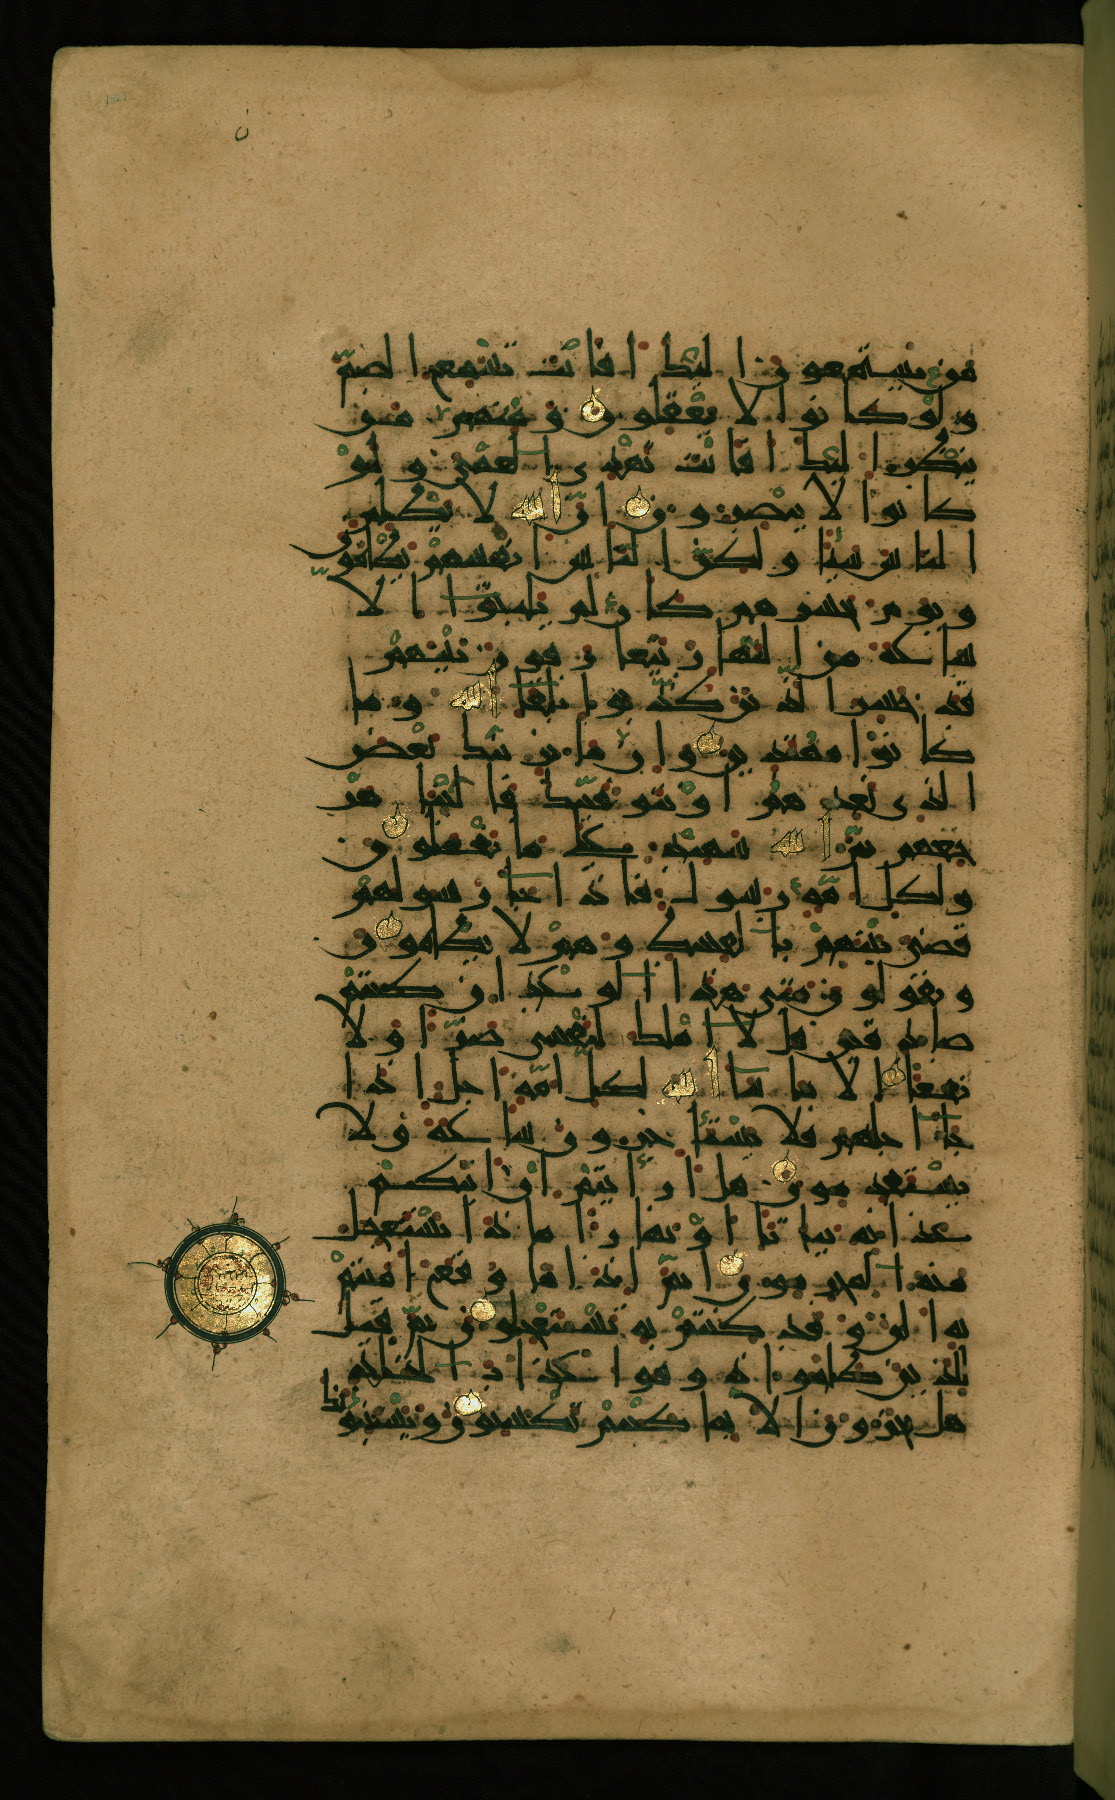 من يستمعون إليك أفأنت تسمع الصم
ولو كانوا لا يعقلون ومنهم من
ينظر إليك أفأنت تهدي العمي ولو
كانوا لا يبصرون إن الله لا يظلم
الناس شيئا ولكن الناس أنفسهم يظلمون
ويوم نحشرهم كأن لم يلبثوا إلا
ساعة من النهار يتعارفون بينهم
قد خسر الذين كذبوا بلقاء الله وما
كانوا مهتدين وإما نرينك بعض
الذي نعدهم أو نتوفينك فإلينا مر
جعهم ثم الله شهيد على ما يفعلون
ولكل أمة رسول فإذا جاء رسولهم
قضي بينهم بالقسط وهم لا يظلمون
ويقولون متى هذا الوعد إن كنتم
صادقين قل لا أملك لنفسي ضرا ولا
نفعا إلا ما شاء الله لكل أمة أجل إذا
جاء أجلهم فلا يستأخرون ساعة ولا
يستقدمون قل أرأيتم إن أتيكم
عذابه بياتا أو نهارا ماذا يستعجل
منه المجرمون أثم إذا ما وقع آمنتم
به آلآن وقد كنتم به تستعجلون ثم قيل
للذين ظلموا ذوقوا عذاب الخلد
هل تجزون إلا بما كنتم تكسبون ويستنبئونك